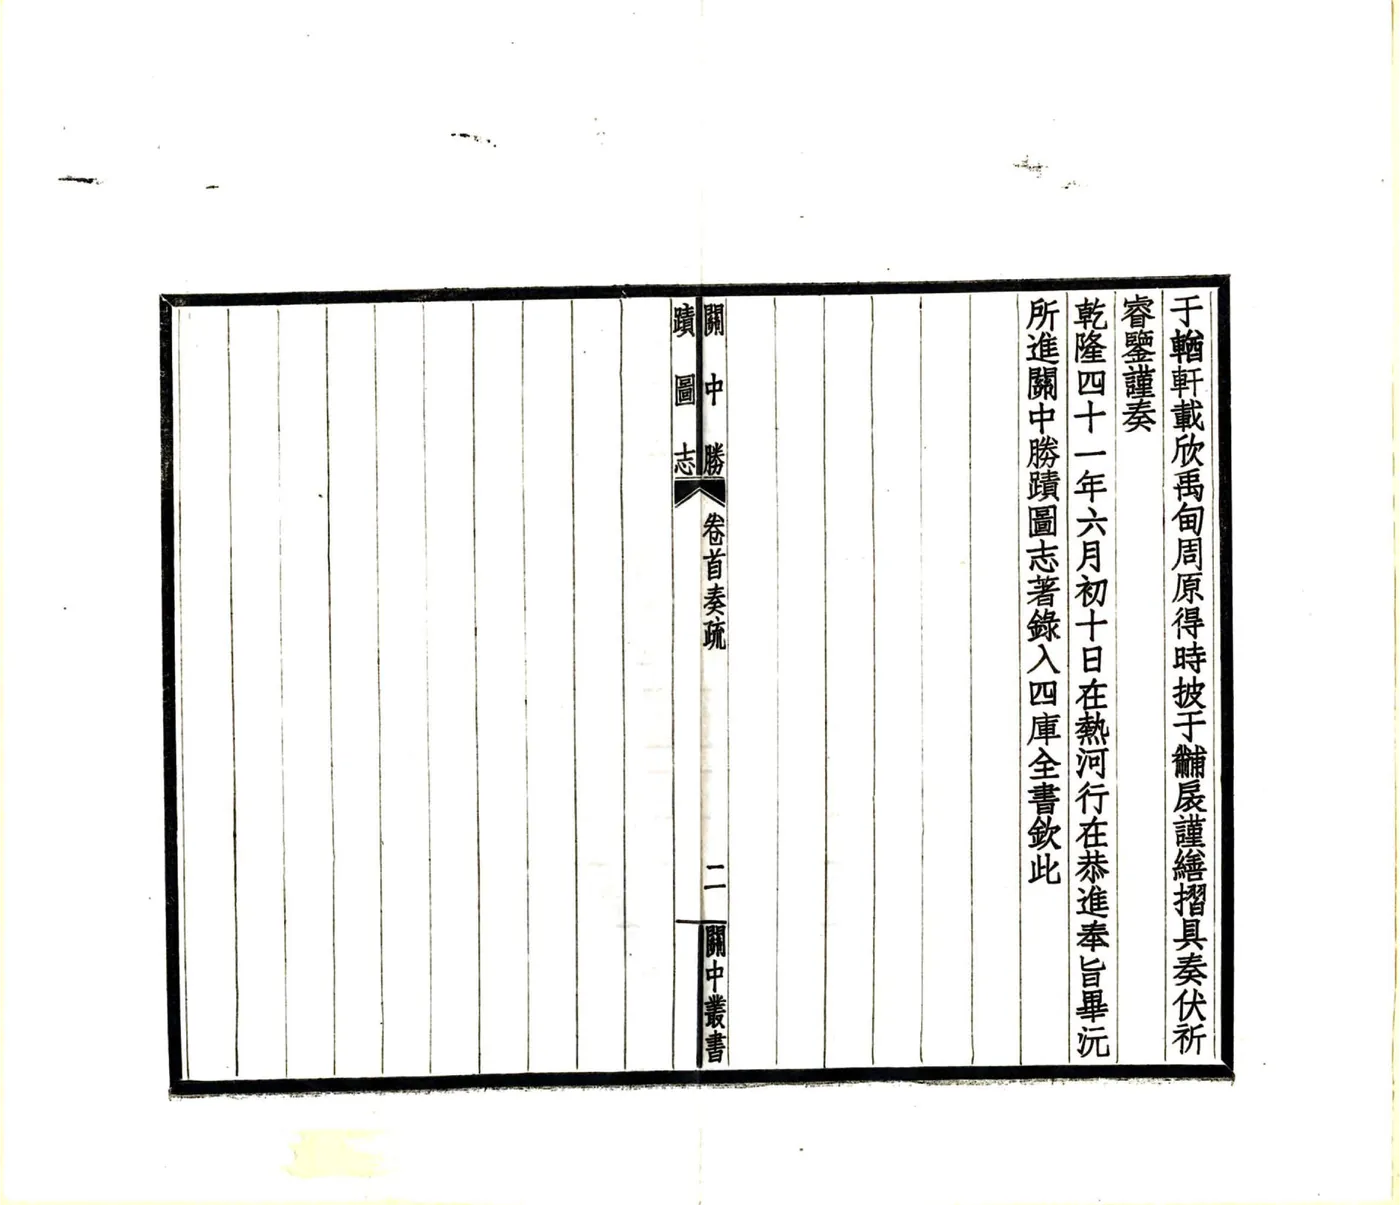 于輶軒載欣禹甸周原得時披于黼扆謹繕摺具奏伏祈
睿鑒謹奏
乾隆四十一年六月初十日在熱河行在恭進奉旨畢沅
所進關中勝蹟圖志著錄入四庫全書欽此
關中勝
蹟圖志
卷首奏疏
二
關中叢書